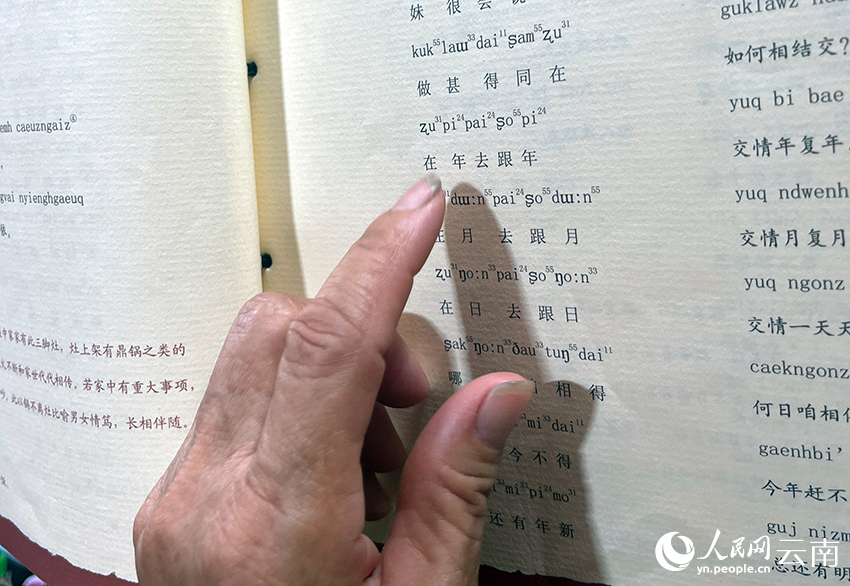 emh caeuzngaiz④
gvai nyienghgaeuq
家有此三脚灶，灶上架有鼎锅之类的
火不断和家世代代相传。若家中有重大事项，
此以锅不离灶比喻男女情笃，长相伴随。
妹 很 会 说
kuk⁵⁵laɯ³³dai¹¹ʂam⁵⁵ʐu³¹
做 甚 得 同 在
ʐu³¹pi²⁴pai²⁴ʂo⁵⁵pi²⁴
在 年 去 跟 年
dɯ:n⁵⁵pai²⁴ʂo⁵⁵dɯ:n⁵⁵
月 去 跟 月
ʐu³¹ŋo:n³³pai²⁴ʂo⁵⁵ŋo:n³³
在 日 去 跟 日
ʂak⁵⁵ŋo:n³³ðau³³tuŋ⁵⁵dai¹¹
哪 相 得
mi³³dai¹¹
今 不 得
mi³³pi²⁴mo³¹
还 有 年 新
guklawz
如何相结交？
yuq bi bae
交情年复年，
yuq ndwenh
交情月复月
yuq ngonz
交情一天天
caekngonz
何日咱相
gaenhbi'
今年赶不
guj nizm
总还有明
人民网 云南
yn.people.cn